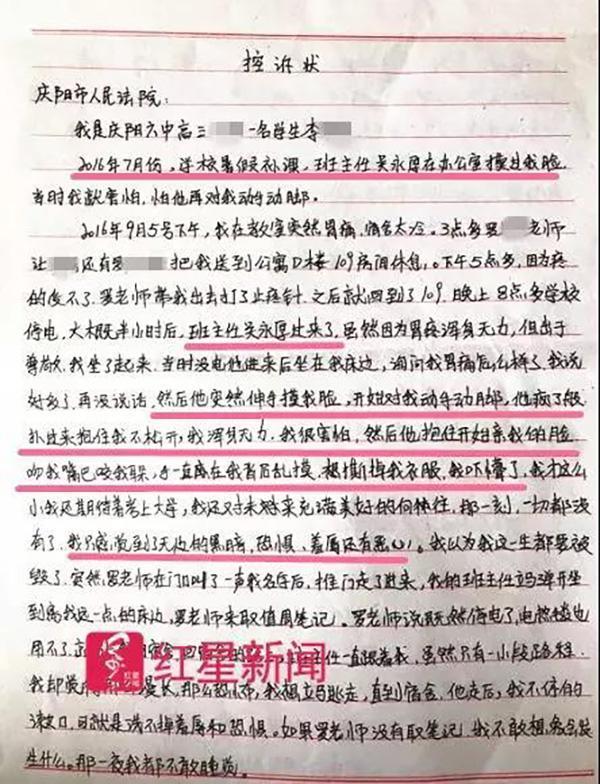 控诉状
庆阳市人民法院:
我是庆阳六中高三 一名学生李
2016年7月份,学校暑假补课,班主任吴永厚在办公室摸过我脸
当时我就害怕,怕他再对我动手动脚。
2016年9月5号下午,我在教室突然胃痛,宿舍太冷。3点多罗 老师
让 还有罗 把我送到公寓D楼109房间休息。下午5点多,因为疼
的受不了.罗老师带我出去打了止疼针.之后就回到了109.晚上8点多学校
停电,大概半小时后,班主任吴永厚过来了,虽然因为胃疼浑身无力,但出于
尊敬,我坐了起来.当时没电他进来后坐在我床边,询问我胃痛怎么样了.我说
好多了.再没说话,然后他突然伸手摸我脸,开始对我动手动脚,他疯了般
扑过来抱住我不松开,我浑身无力.我很害怕,然后他抱住开始亲我的脸
吻我嘴巴咬我耳朵,手一直在我背后乱摸.想撕掉我衣服,我吓懵了,我才这么
小我还期待着考上大学,我还对未来充满美好的向往,那一刻,一切都没
有了.我只感觉到了无边的黑暗,恐惧、羞辱还有恶心。我以为我这一生都要被
毁了.突然罗老师在门口叫了一声我名字后,推门走了进来,我的班主任立马弹开坐
到离我远一点的床边,罗老师来取值周笔记。罗老师说既然停电了,电热毯也
用不了 主任一直跟着我,虽然只有一小段路程
我却觉得 漫长,那么恐怖,我想立马逃走,直到宿舍,他走后,我不停的
漱口.可就是洗不掉羞辱和恐惧。如果罗老师没有取笔记,我不敢想象会发
生什么。那一夜我都不敢睡觉。
红星新闻